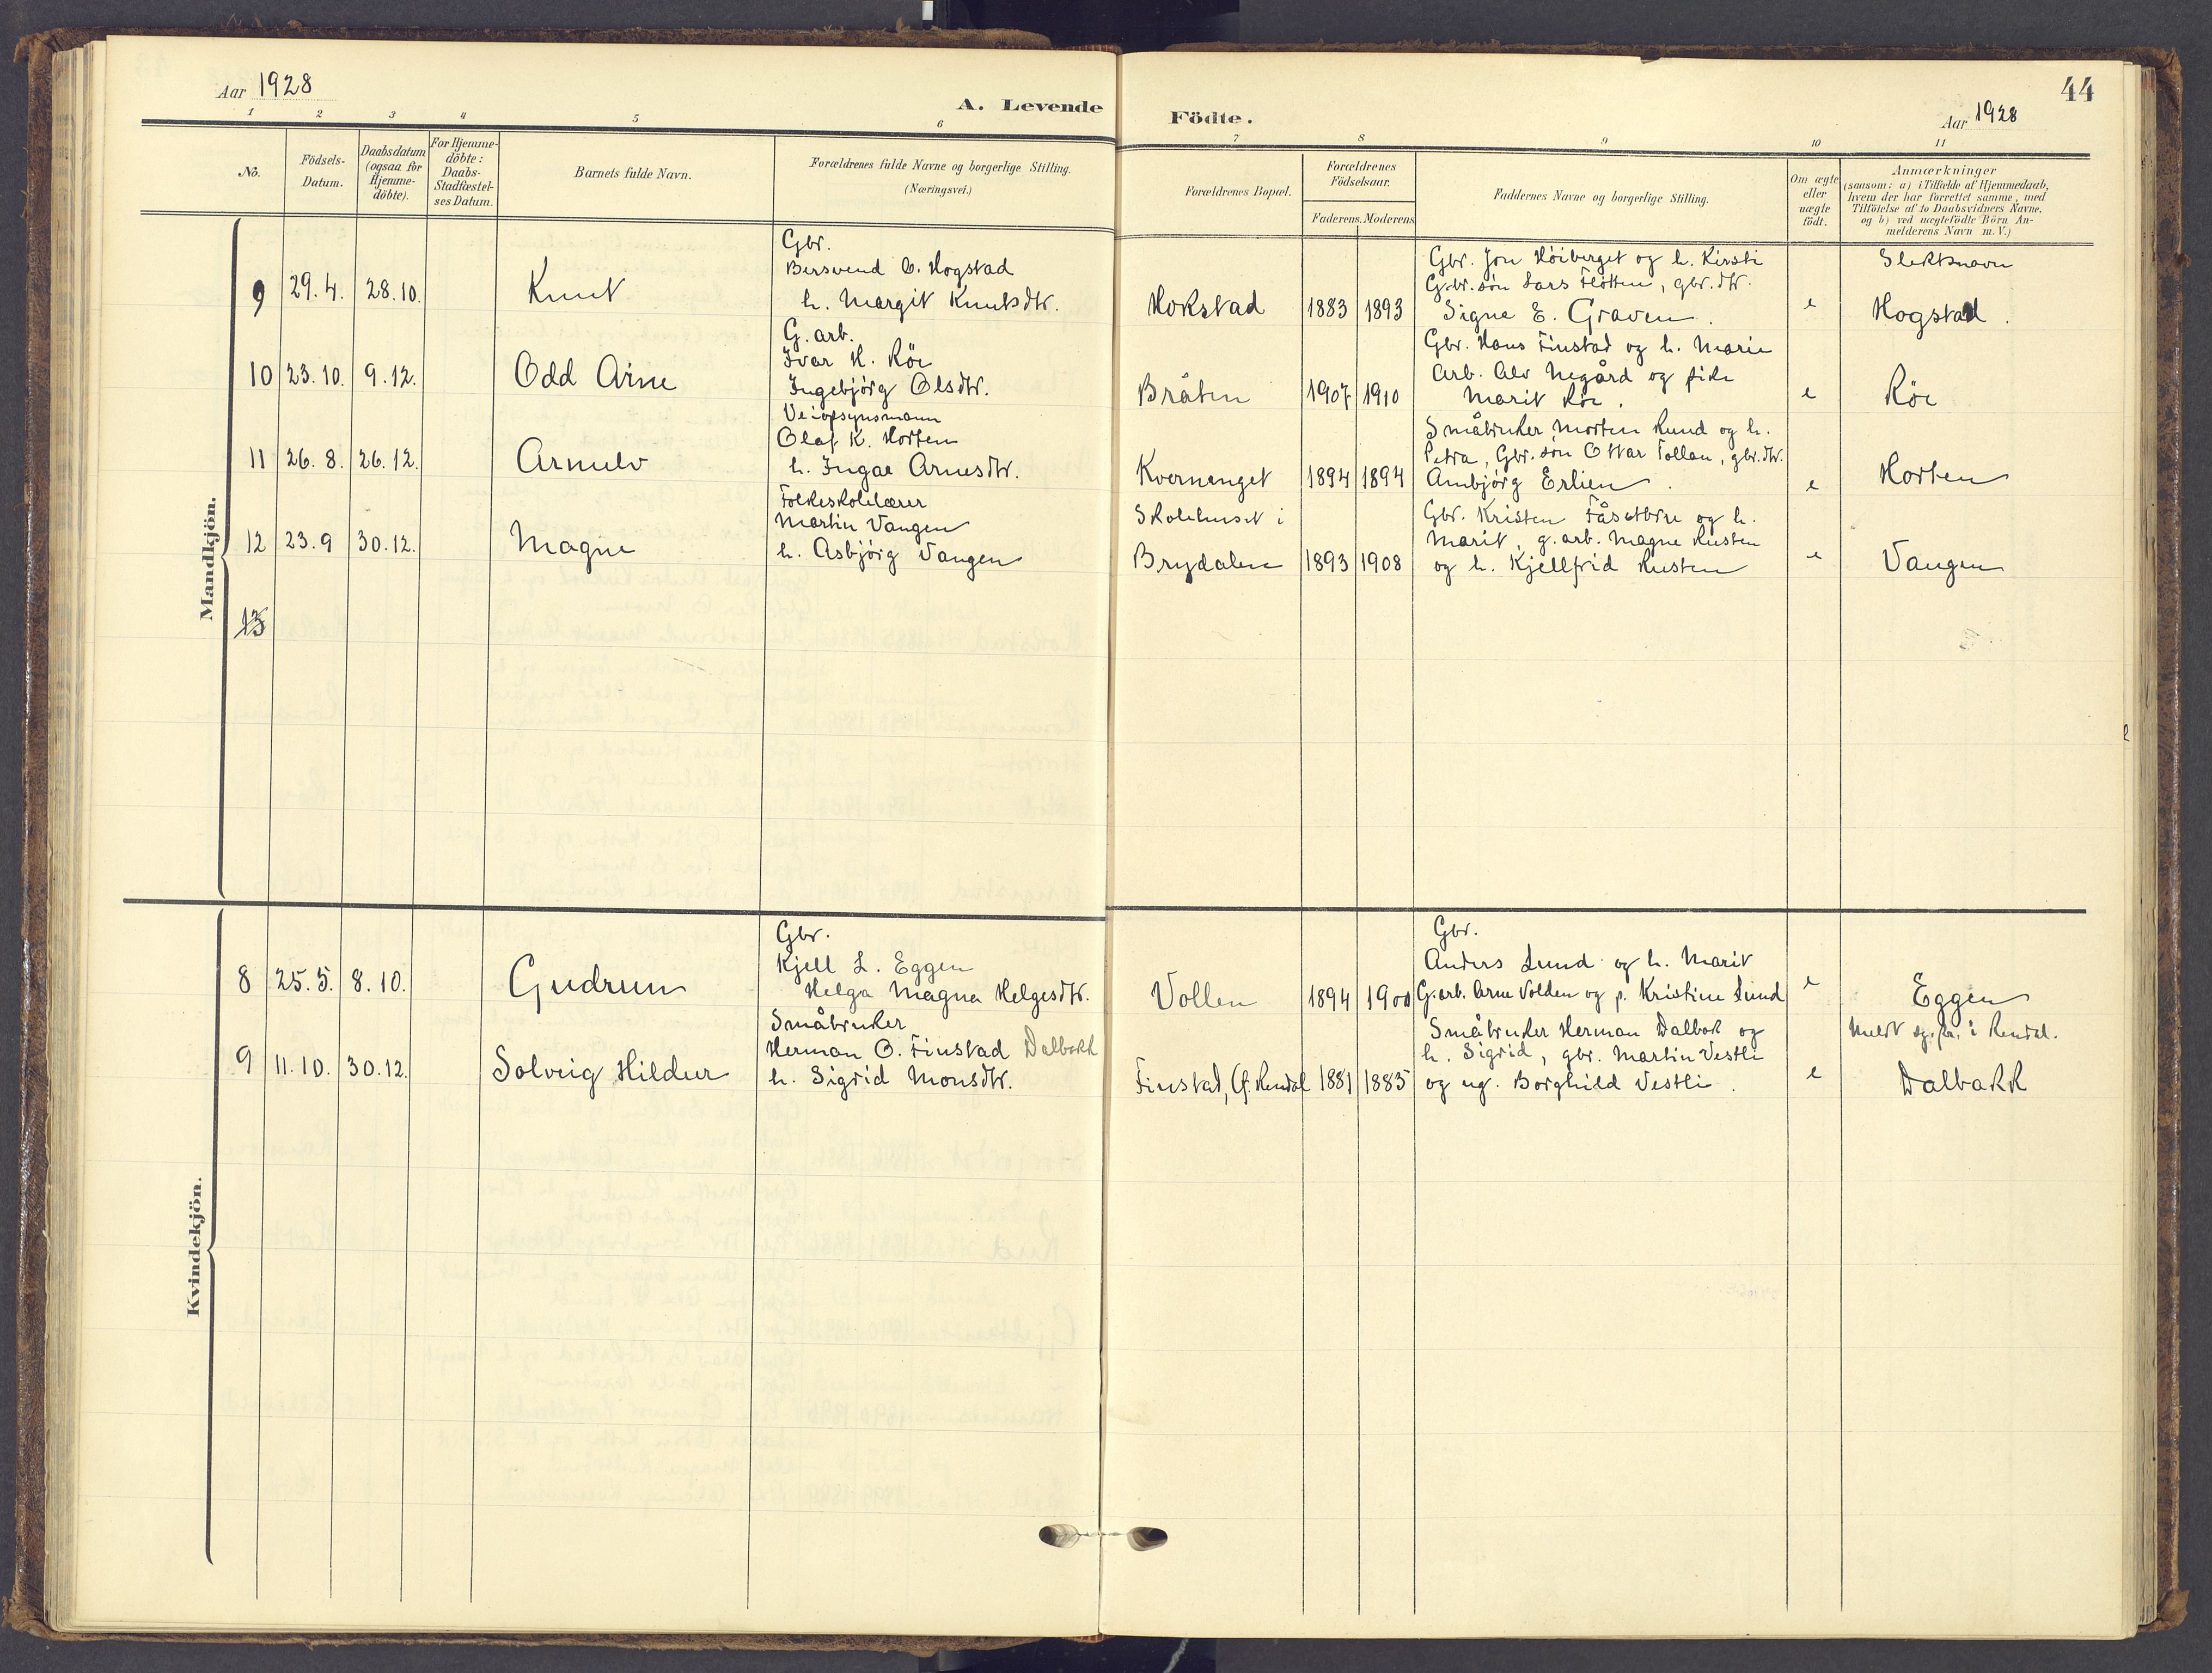 Aar 1928
A. Levende Födte.
Aar 1928
44
1 2 3 4 5 6 7 8 9 10 11
No.
Födsels-Datum.
Daabsdatum (ogsaa for Hjemme-döbte).
For Hjemme-döbte: Daabs-Stadfæstel-ses Datum.
Barnets fulde Navn.
Forældrenes fulde Navne og borgerlige Stilling. (Næringsvei.)
Forældrenes Bopæl.
Forældrenes Födselsaar.
Faderens. Moderens
Faddernes Navne og borgerlige Stilling.
Om ægte eller uægte födt.
Anmærkninger (saasom: a) i Tilfælde af Hjemmedaab, hvem der har forrettet samme, med Tilföielse af to Daabsvidners Navne. og b) ved uægtefödte Börn An-melderens Navn m.V.)
Mandkjön.
Gbr.
Gbr. Jon Höiberget og h. Kirsti
Slektsnavn
Bersvend O. Hogstad
Gbr. sön Lars Flötten, gbr. dtr.
9 29.4. 28.10. Knut h. Margit Knutsdtr. Hokstad 1883 1893 Signe E. Graven. e Hogstad.
G. arb.
Gbr. Hans Finstad og h. Marie
Ivar H. Röe
Arb. Alv Negård og pike
10 23.10. 9.12. Odd Arne Ingebjörg Olsdtr. Bråten 1907 1910 Marit Röe. e Röe
Veiopsynsmann
Småbruker Morten Rund og h.
Olaf K. Horten
Petra, Gbr. sön Ottar Tollan, gbr. dtr.
11 26.8. 26.12. Arnulv h. Ingae Arnesdtr. Kvernenget 1894 1894 Ambjörg Erlien. e Horten
Folkeskolelærer
Skolehuset i
Gbr. Kristen Fåsetbru og h.
Martin Vangen
Marit, g. arb. Magne Rusten
12 23.9 30.12. Magne h. Asbjörg Vangen Brydalen 1893 1908 og h. Kjellfrid Rusten e Vangen
13
Kvindekjön.
Gbr.
Gbr.
Kjell L. Eggen
Anders Lund og h. Marit
8 25.5. 8.10. Gudrun Helga Magna Helgesdtr. Vollen 1894 1900 G. arb. Arne Volden og p. Kristine Lund e Eggen
Småbruker
Småbruker Herman Dalbak og
Meldt sg. pr. i Rendal.
Herman O. Finstad Dalbakk
h. Sigrid, gbr. Martin Vestli
9 11.10. 30.12. Solveig Hildur h. Sigrid Monsdtr. Finstad, Öf. Rendal 1881 1885 og ug. Borghild Vestli. e Dalbakk